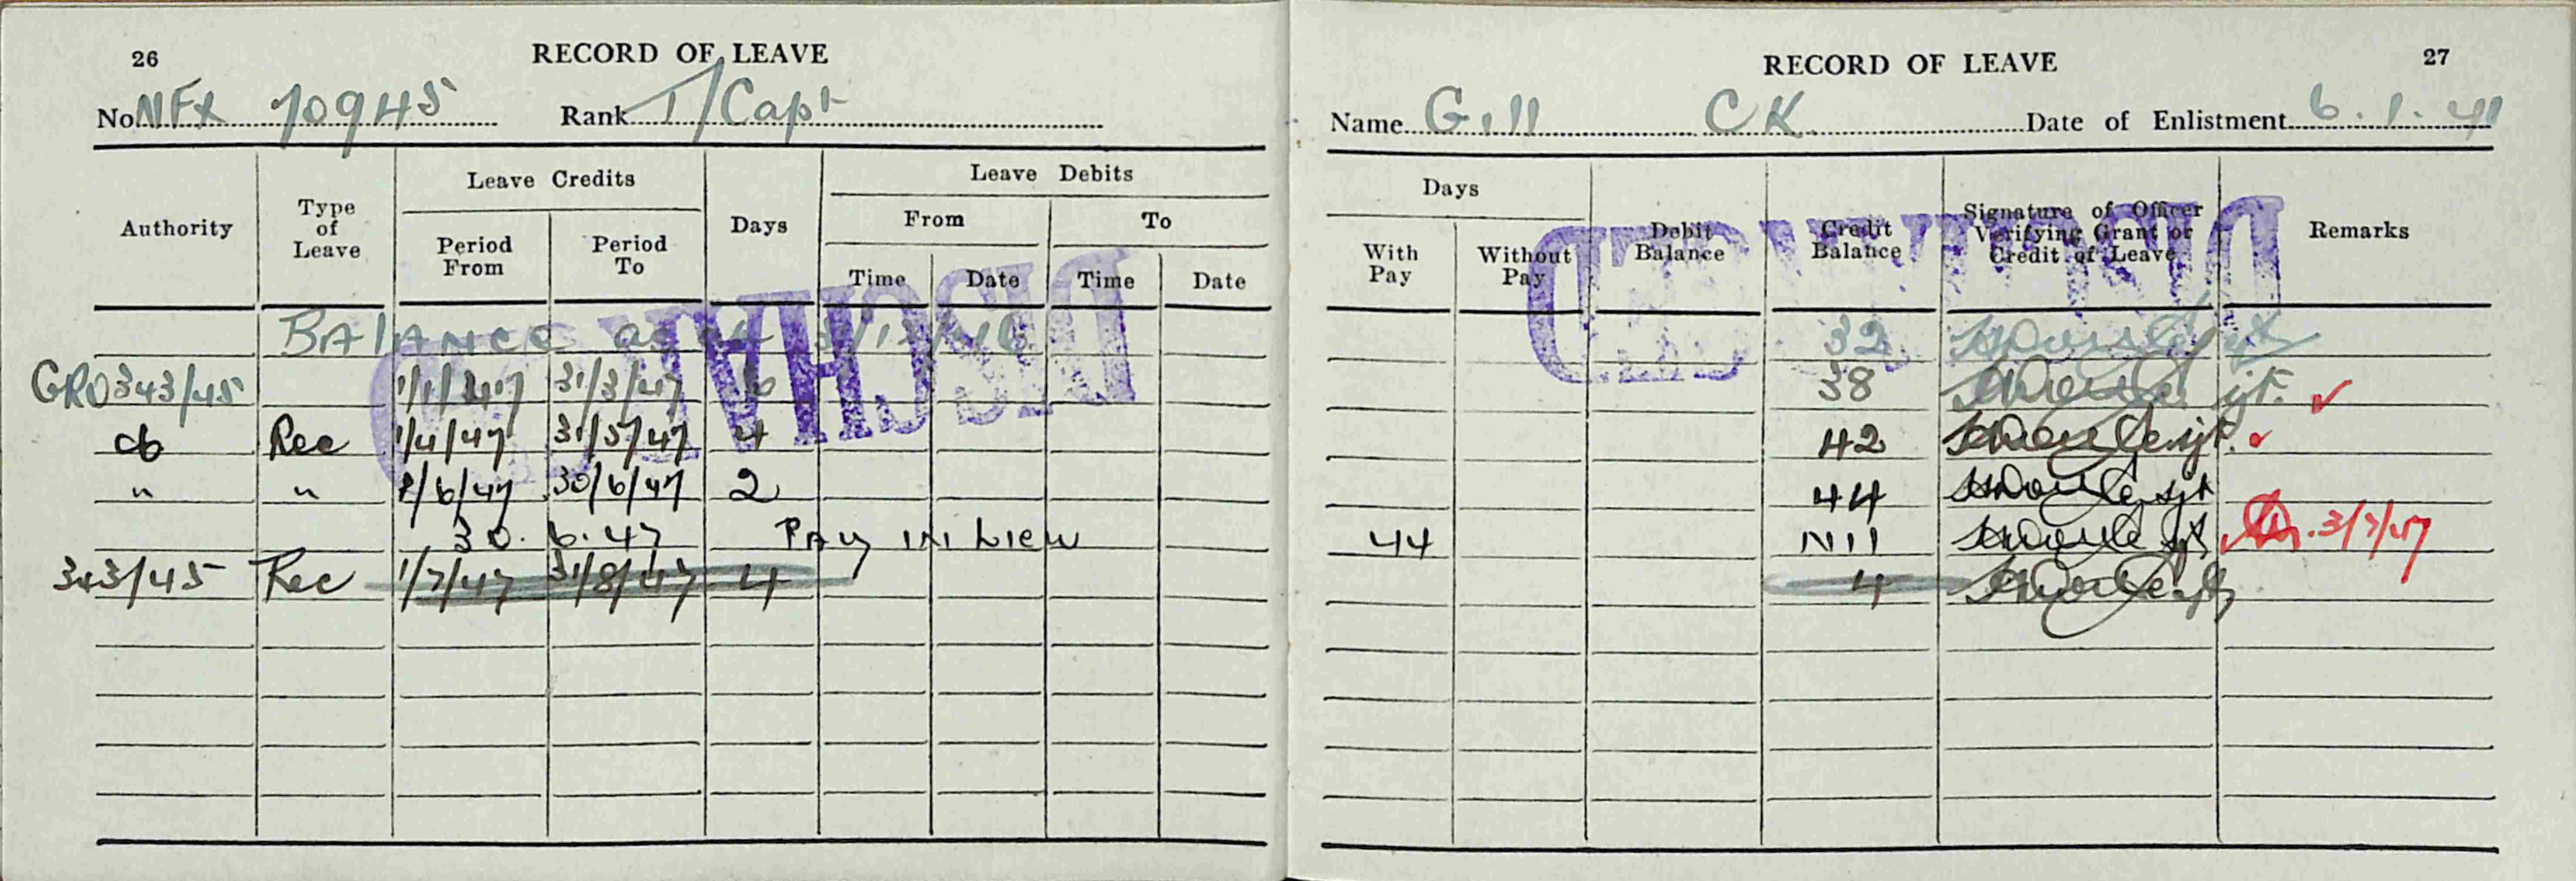 26
RECORD OF LEAVE
No. NFX 70945 Rank T/Capt
Authority
Type of Leave
Leave Credits
Period From
Period To
Days
Leave Debits
From
To
Time Date Time Date
BALANCE as at 31/12/46
GRO 343/45 1/1/47 31/3/47 6
do Rec 1/4/47 31/5/47 4
" " 1/6/47 30/6/47 2
30. 6. 47 Pay in Liew
343/45 Rec 1/7/47 31/8/47 4
DISCHARGED
27
RECORD OF LEAVE
Name Gill CK Date of Enlistment 6.1.41
Days
With Pay
Without Pay
Debit Balance
Credit Balance
Signature of Officer Verifying Grant or Credit of Leave
Remarks
32
38
42
44
44 Nil 3/7/47
4
DISCHARGED